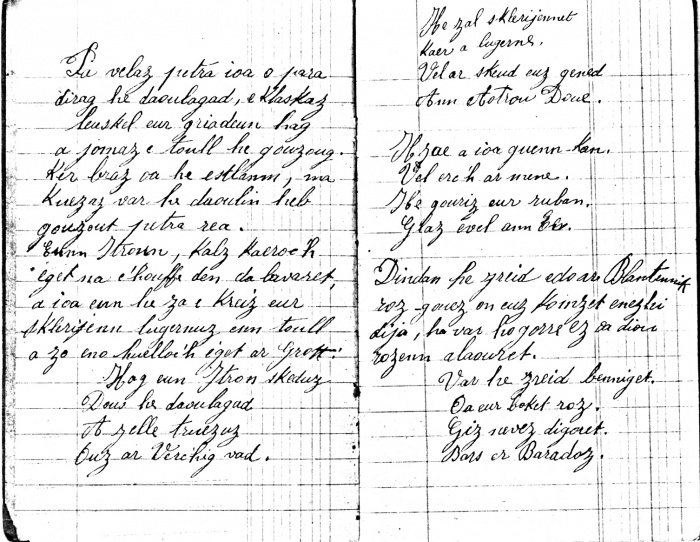 Pa velaz petra ioa o para
dirag he daoulagad, e klaskaz
leuskel eur griadenn hag
a jomaz e toull he gouzoug.
Ker braz oa he estlamm, ma
Kuezaz var he daoulin heb
gouzout petra rea.
Eunn Itroun, Kalz Kaeroc'h
eget na c'hauffe den da lavaret,
a ioa enn he za e Kreiz eur
sklerijenn lugernuz enn toull
a zo eno huelloc'h eget ar Grott.
Hag eun Itron skeduz
Dous he daoulagad
A zelle truezuz
Ouz ar Verc'hig vad.
He zal sklerijennet
Kaer a lugerne,
Vel ar skeud euz gened
Ann Aotrou Doue.
He zae a ioa guenn-kan.
Vel erc'h ar mene.
He gouriz eur ruban.
Glaz evel ann Ee.
Dindan he zreid edo ar Blantennik
roz-gouez on euz komzet anezhi
dija, ha var ho gorre ez oa diou
rozenn alaouret.
Var he zreid benniget.
Oa eur boket roz.
Giz nevez digoret.
Bars er Baradoz.